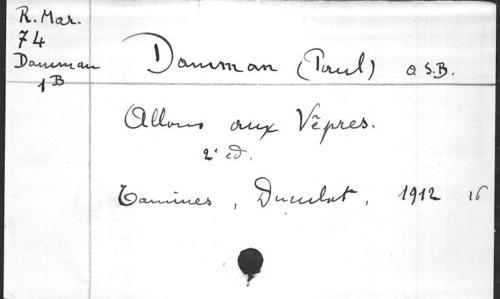 R. Mar.
74
Damman
1B
Damman (Paul) O.S.B.
Allons aux Vêpres.
2e éd.
Tamines, Duculot, 1912 16